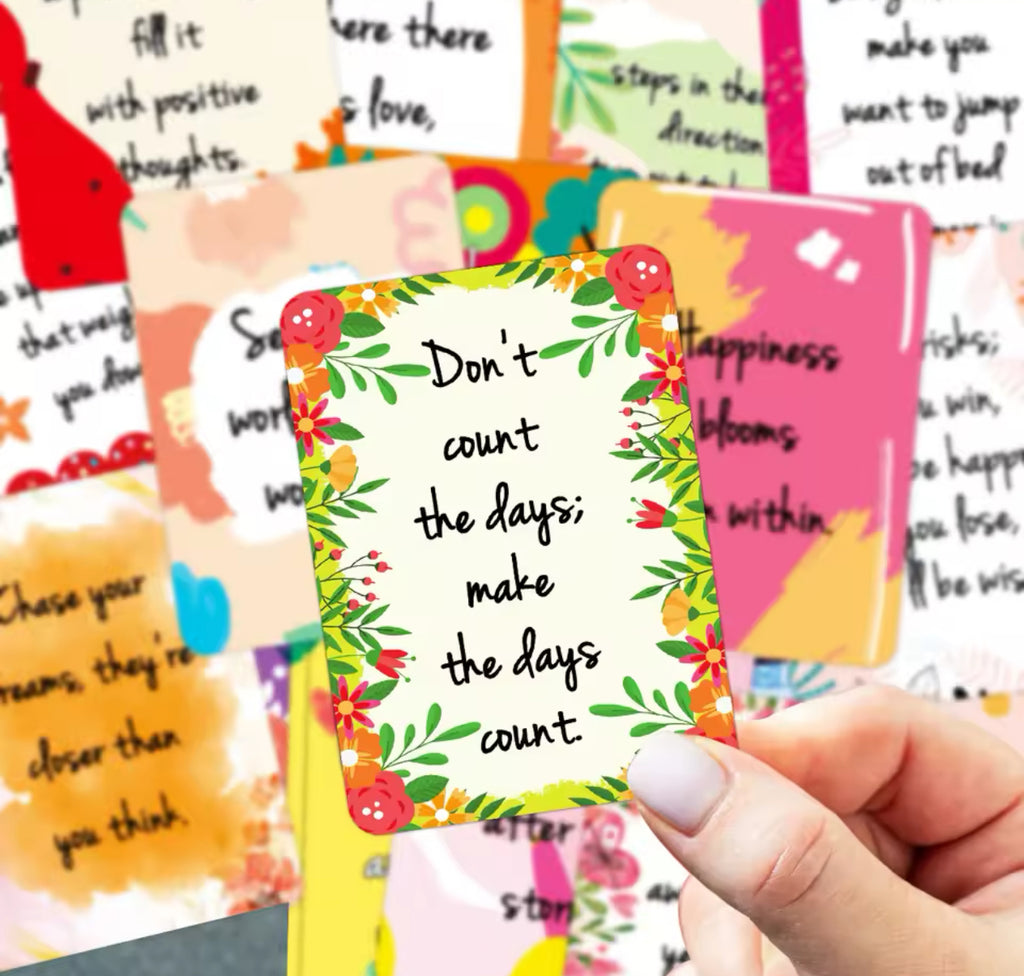 fill it
with positive
thoughts.
here there
s love,
steps in
direction
make you
want to jump
out of bed
that weig
you dow
Se
wor
wo
Don't
count
the days;
make
the days
count.
Happiness
blooms
within.
risks;
win,
be happ
you lose,
ll be wis
Chase your
reams, they're
closer than
you think.
after
stor